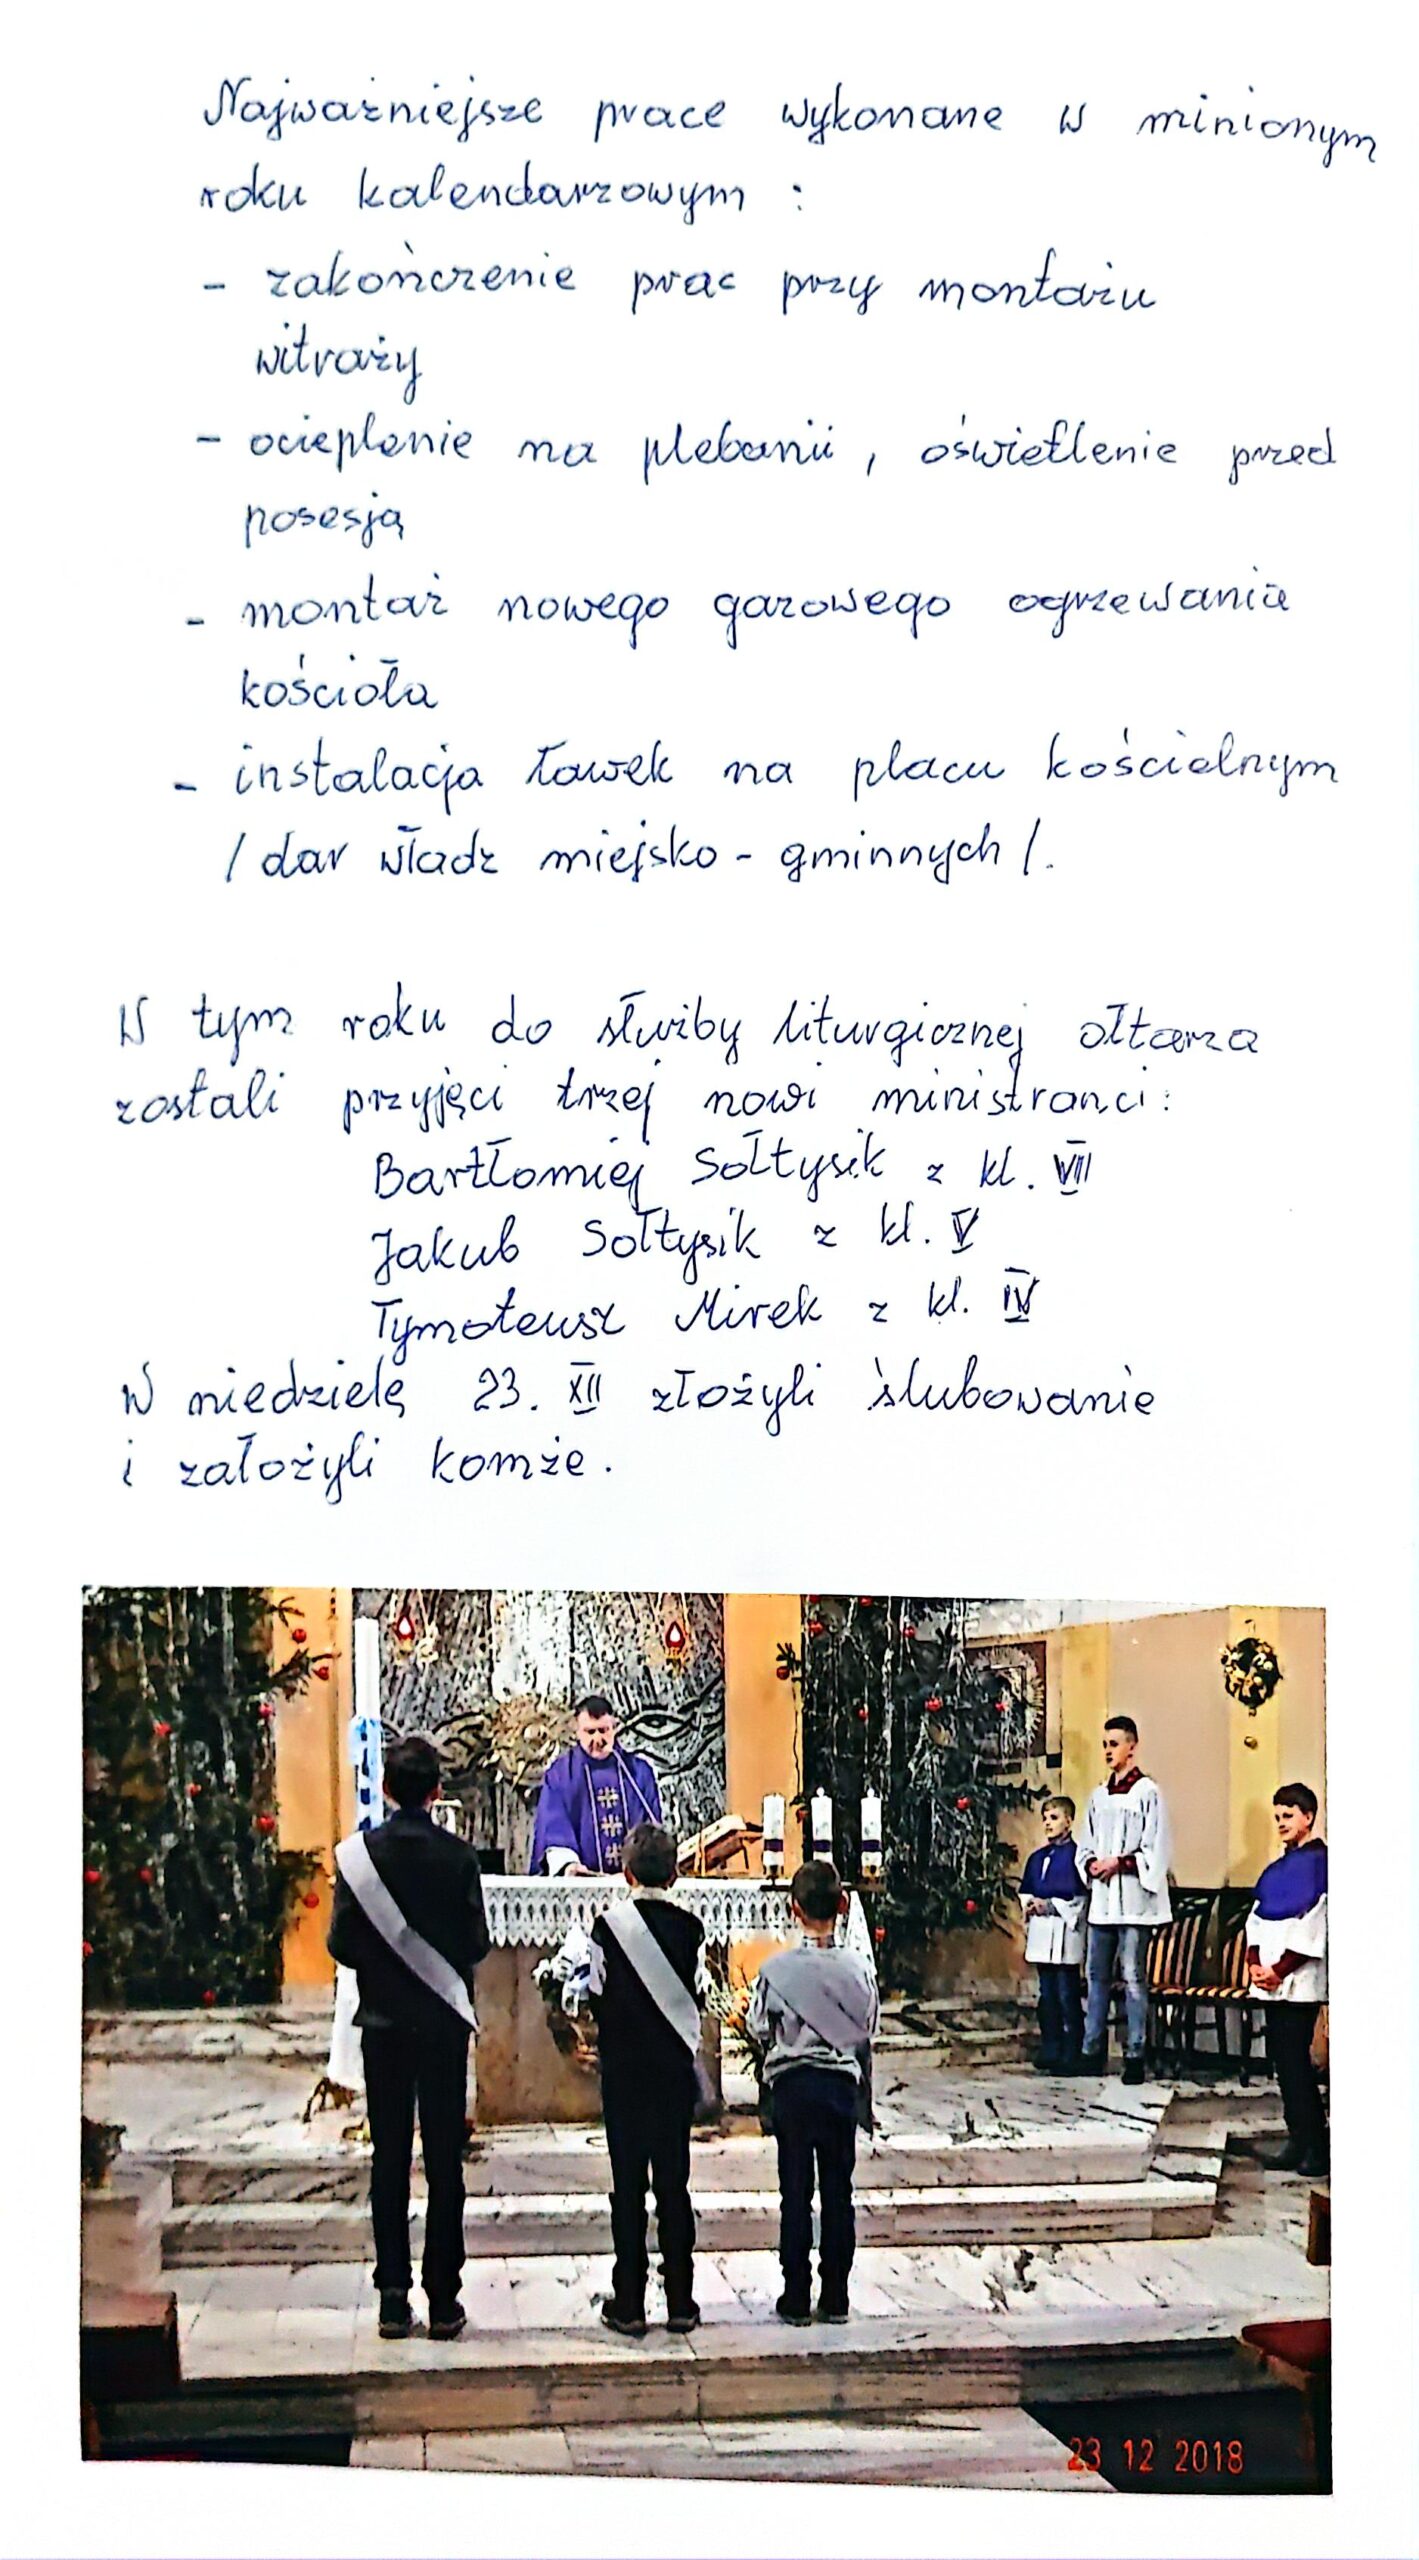 Najważniejsze prace wykonane w minionym
roku kalendarzowym :
- zakończenie prac przy montażu
witraży
- ocieplenie na plebanii, oświetlenie przed
posesją
- montaż nowego gazowego ogrzewania
kościoła
- instalacja ławek na placu kościelnym
/ dar władz miejsko - gminnych /.
W tym roku do służby liturgicznej ołtarza
zostali przyjęci trzej nowi ministranci:
Bartłomiej Sołtysik z kl. VII
Jakub Sołtysik z kl. V
Tymoteusz Mirek z kl. IV
W niedzielę 23. XII złożyli ślubowanie
i założyli komże.
23 12 2018